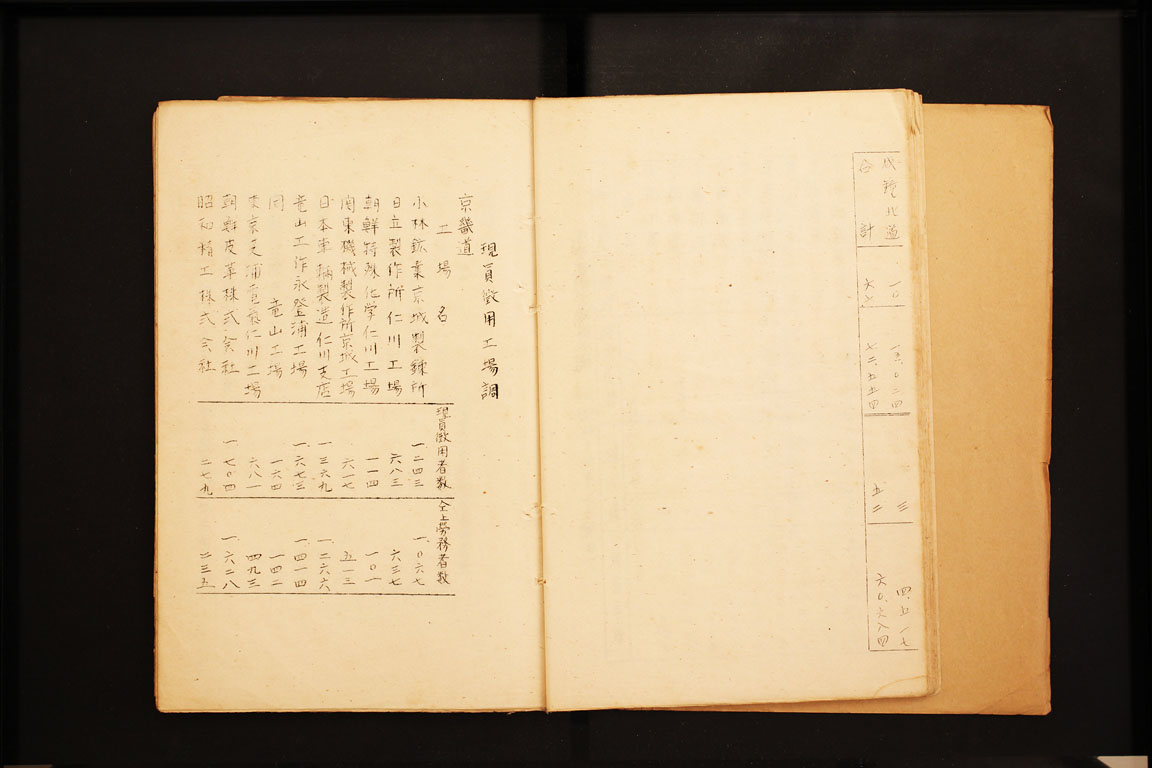 咸鏡北道 一〇 一三、〇二四 三 四、五一七
合計 六 七二五五四 五二 六〇、六八四
現員徴用工場調
京畿道
工場名 現員徴用者数 仝上労務者数
小林鉱業京城製錬所 一、二四三 一、〇六七
日立製作所仁川工場 六八三 六三七
朝鮮特殊化学仁川工場 一一四 一〇一
関東機械製作所京城工場 六一七 五一三
日本車輌製造仁川支店 一、三六九 一、二六六
竜山工作永登浦工場 一、六七三 一、四一四
同 竜山工場 一六四 一四二
東京芝浦電気仁川工場 六八一 四九三
朝鮮皮革株式会社 一、七〇四 一、六二八
昭和精工株式会社 二七九 二三五